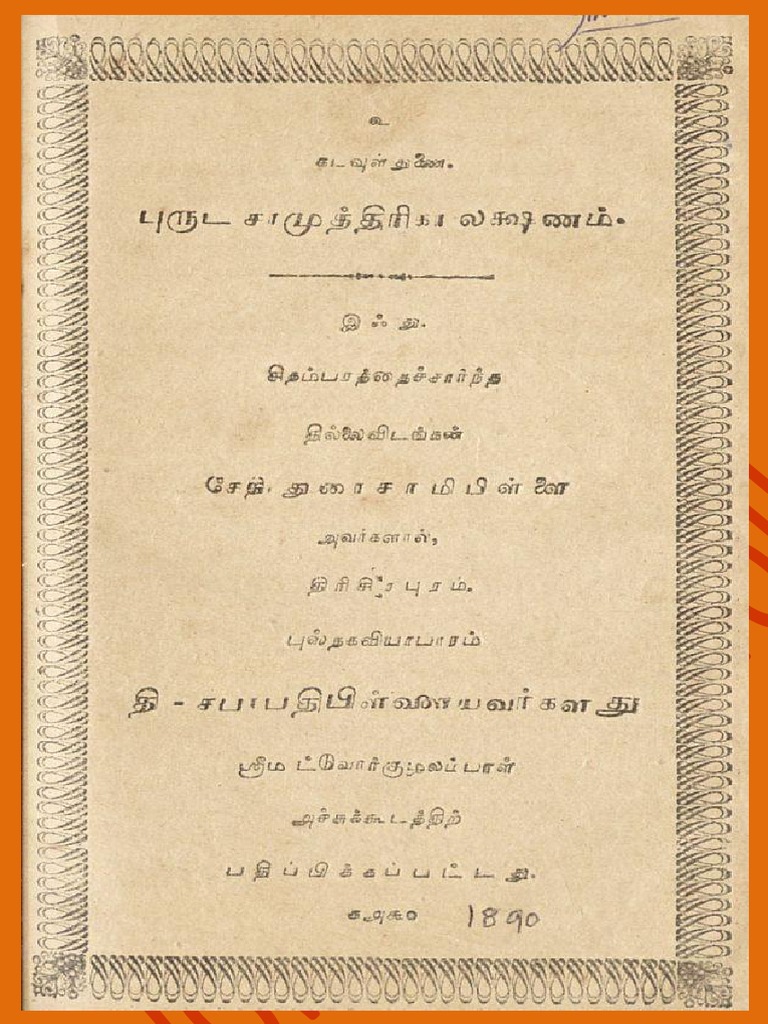 உ
கடவுள் துணை.
புருட சாமுத்திரிகா லக்ஷணம்.
இஃது.
சிதம்பரத்தைச்சார்ந்த
தில்லைவிடங்கன்
சேது. துரைசாமிபிள்ளை
அவர்களால்,
திரிசிரபுரம்.
புஸ்தகவியாபாரம்
தி - சபாபதிபிள்ளையவர்களது
அச்சுக்கூடத்திற்
பதிப்பிக்கப்பட்டது.
௧௮௯௦ 1890